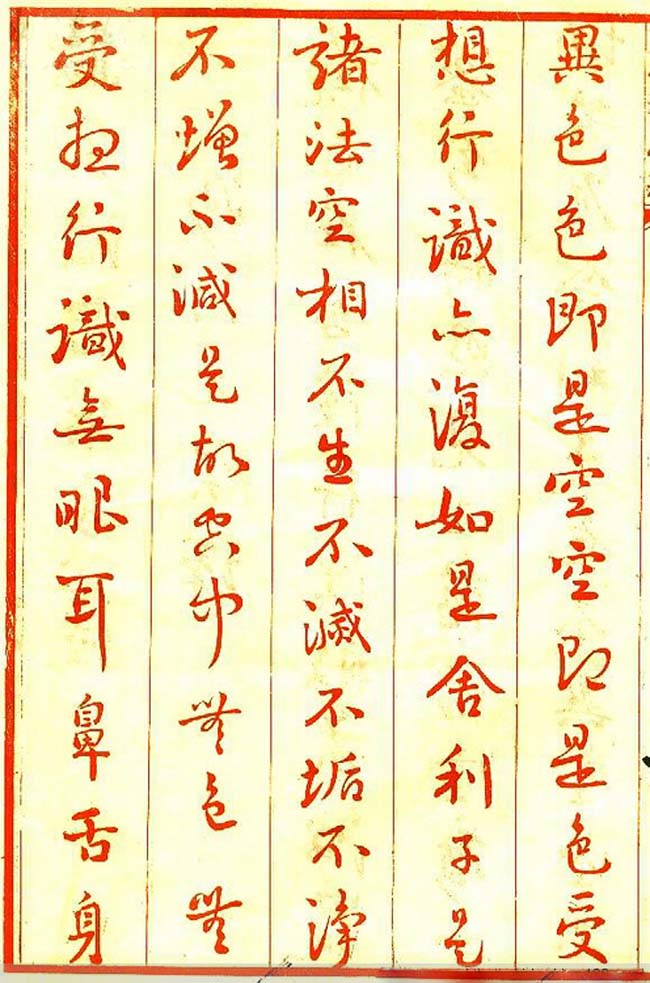 異色色即是空空即是色受
想行識亦復如是舍利子是
諸法空相不生不滅不垢不淨
不增不減是故空中無色無
受想行識無眼耳鼻舌身